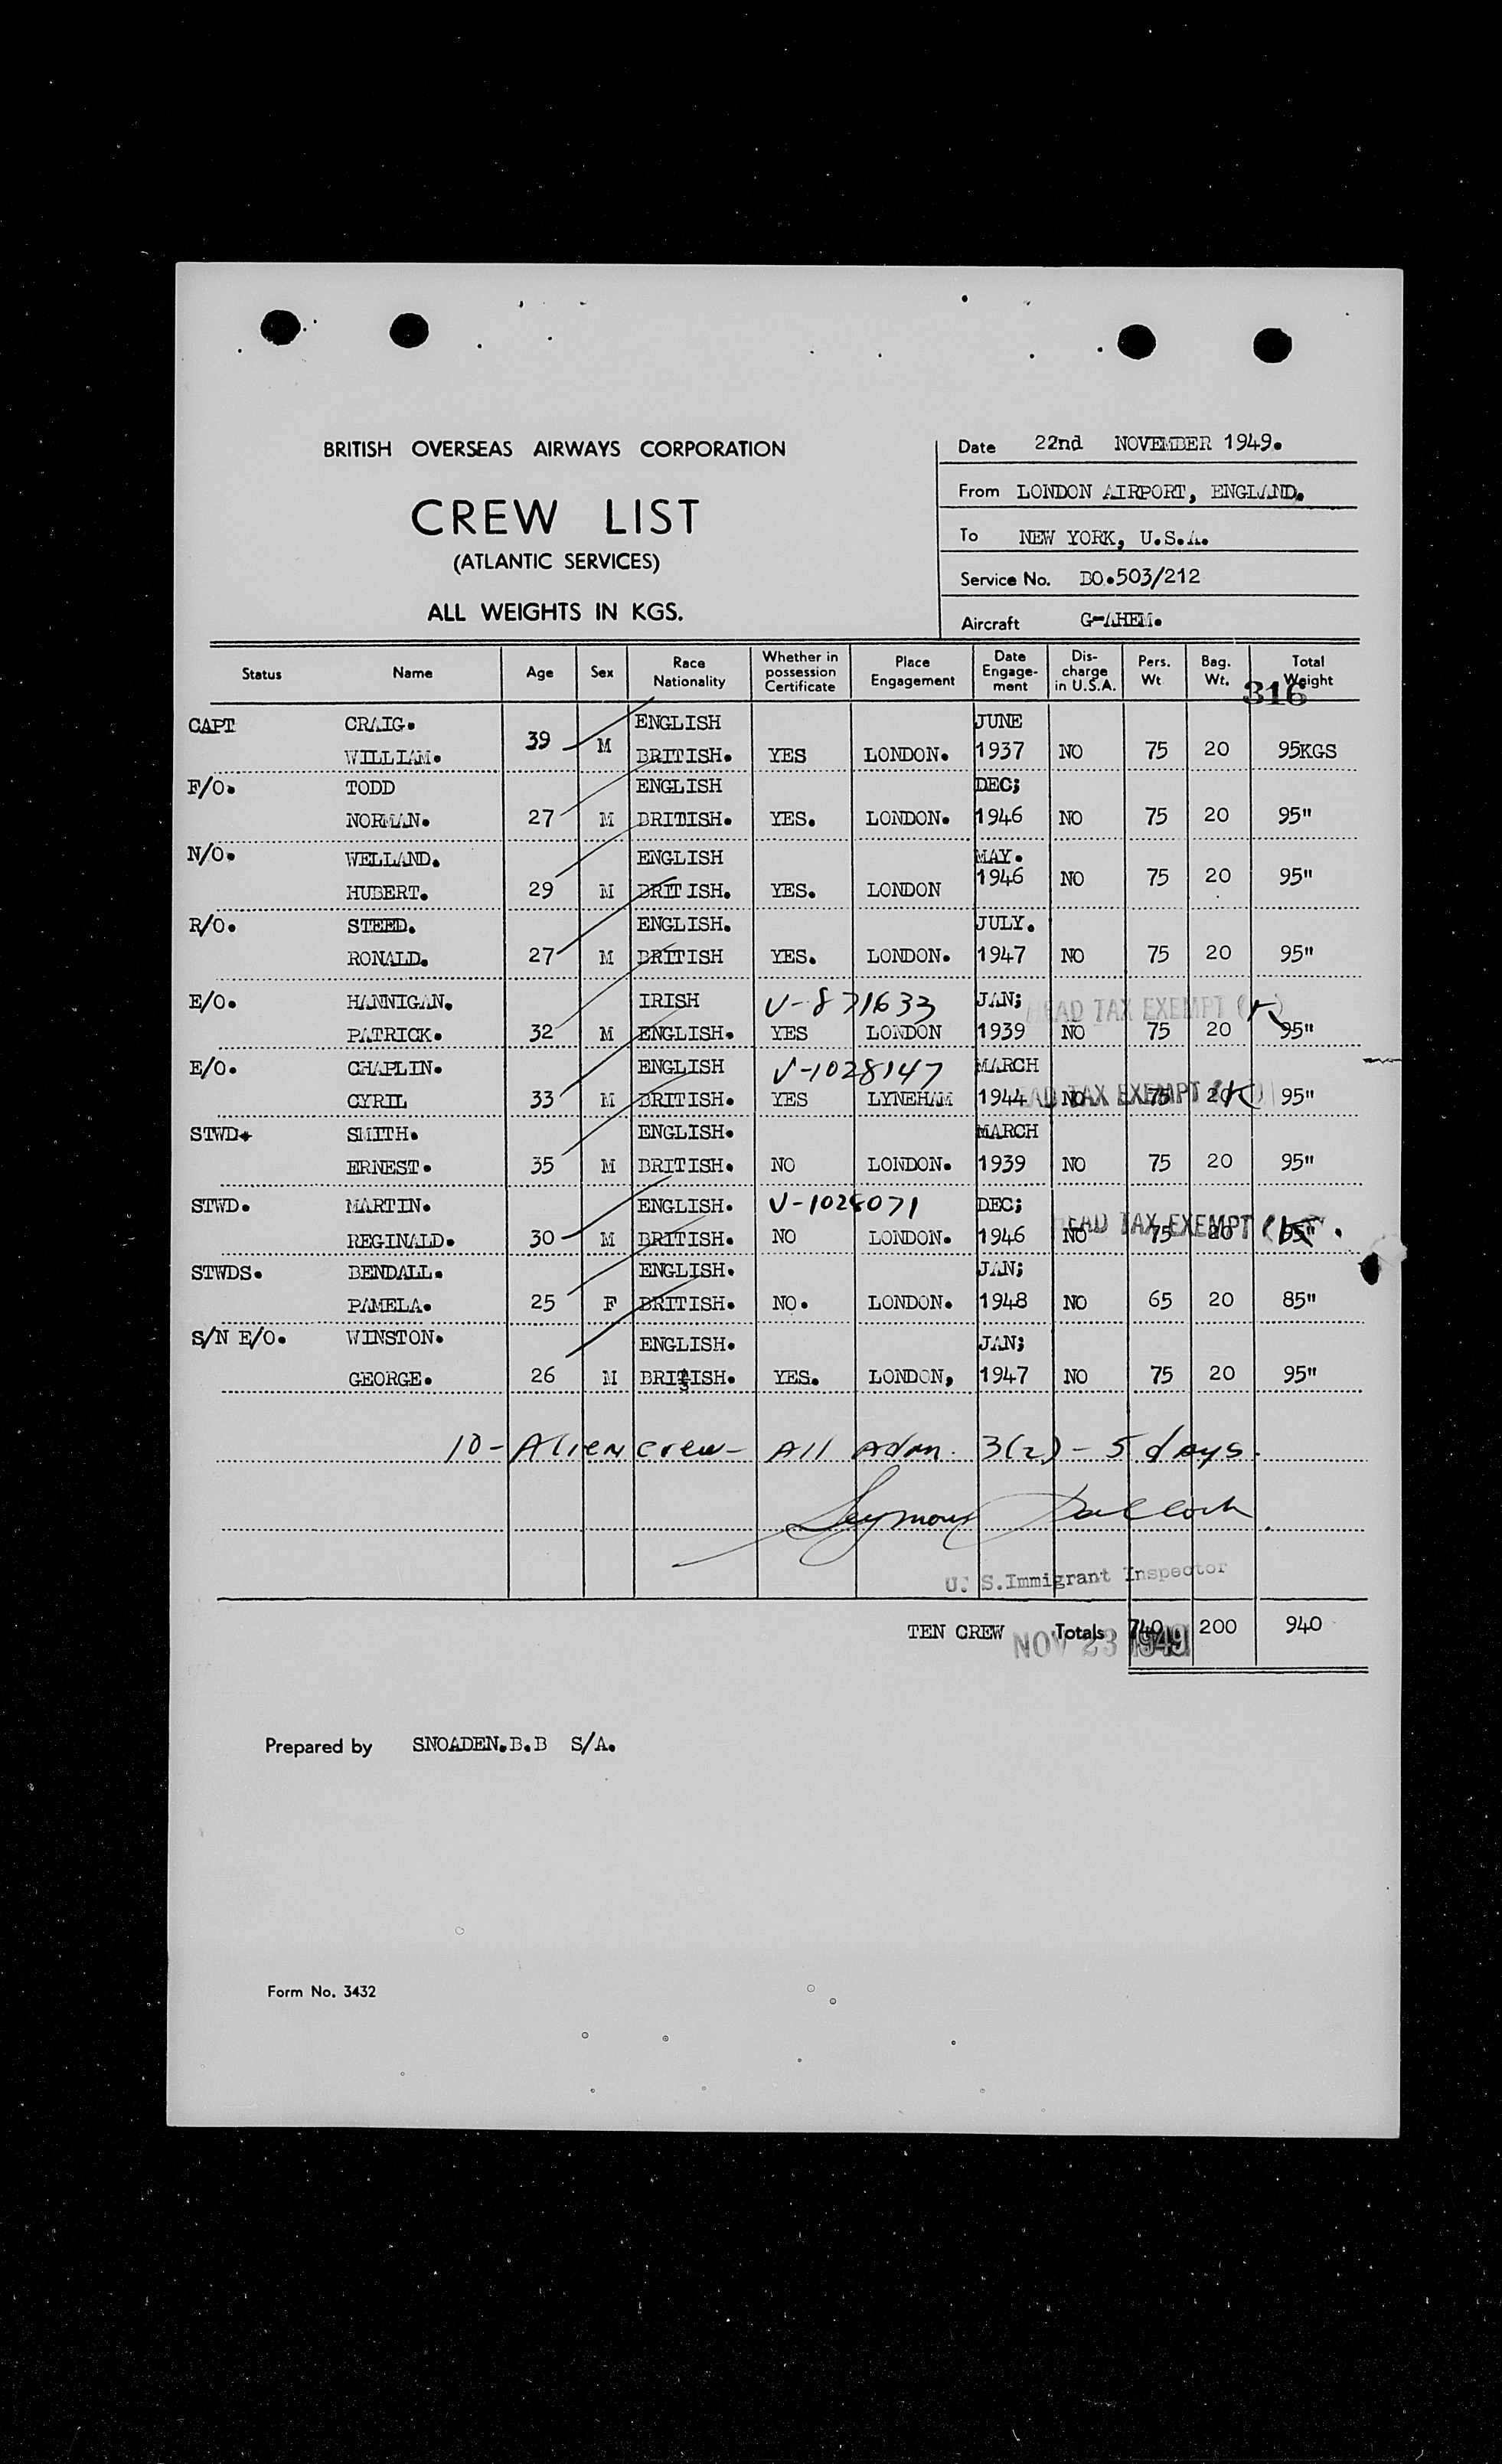 BRITISH OVERSEAS AIRWAYS CORPORATION
CREW LIST
(ATLANTIC SERVICES)
ALL WEIGHTS IN KGS.
Date 22nd NOVEMBER 1949.
From LONDON AIRPORT, ENGLAND.
To NEW YORK, U.S.A.
Service No. BO.503/212
Aircraft G-AHEM.
Status Name Age Sex Race Nationality Whether in possession Certificate Place Engagement Date Engage-ment Dis-charge in U.S.A. Pers. Wt Bag. Wt. Total Weight
316
CAPT CRAIG. ENGLISH JUNE
WILLIAM. 39 M BRITISH. YES LONDON. 1937 NO 75 20 95KGS
F/O. TODD ENGLISH DEC;
NORMAN. 27 M BRITISH. YES. LONDON. 1946 NO 75 20 95"
N/O. WELLAND. ENGLISH MAY.
HUBERT. 29 M BRIT ISH. YES. LONDON 1946 NO 75 20 95"
R/O. STEED. ENGLISH. JULY.
RONALD. 27 M BRITISH YES. LONDON. 1947 NO 75 20 95"
E/O. HANNIGAN. IRISH V-871633 JAN; HEAD TAX EXEMPT (K)
PATRICK. 32 M ENGLISH. YES LONDON 1939 NO 75 20 95"
E/O. CHAPLIN. ENGLISH V-1028147 MARCH
CYRIL 33 M BRITISH. YES LYNEHAM 1944 NO 75 20 95"
HEAD TAX EXEMPT (K)
STWD+ SMITH. ENGLISH. MARCH
ERNEST. 35 M BRITISH. NO LONDON. 1939 NO 75 20 95"
STWD. MARTIN. ENGLISH. V-1028071 DEC; HEAD TAX EXEMPT (K)
REGINALD. 30 M BRITISH. NO LONDON. 1946 NO 75 20 95"
STWDS. BENDALL. ENGLISH. JAN;
PAMELA. 25 F BRITISH. NO. LONDON. 1948 NO 65 20 85"
S/N E/O. WINSTON. ENGLISH. JAN;
GEORGE. 26 M BRITISH. YES. LONDON, 1947 NO 75 20 95"
10-Alien crew- All Adm. 3(2)-5 days.
Seymour
U. S.Immigrant Inspector
TEN CREW Totals 740 200 940
NOV 23 1949
Prepared by SNOADEN.B.B S/A.
Form No. 3432